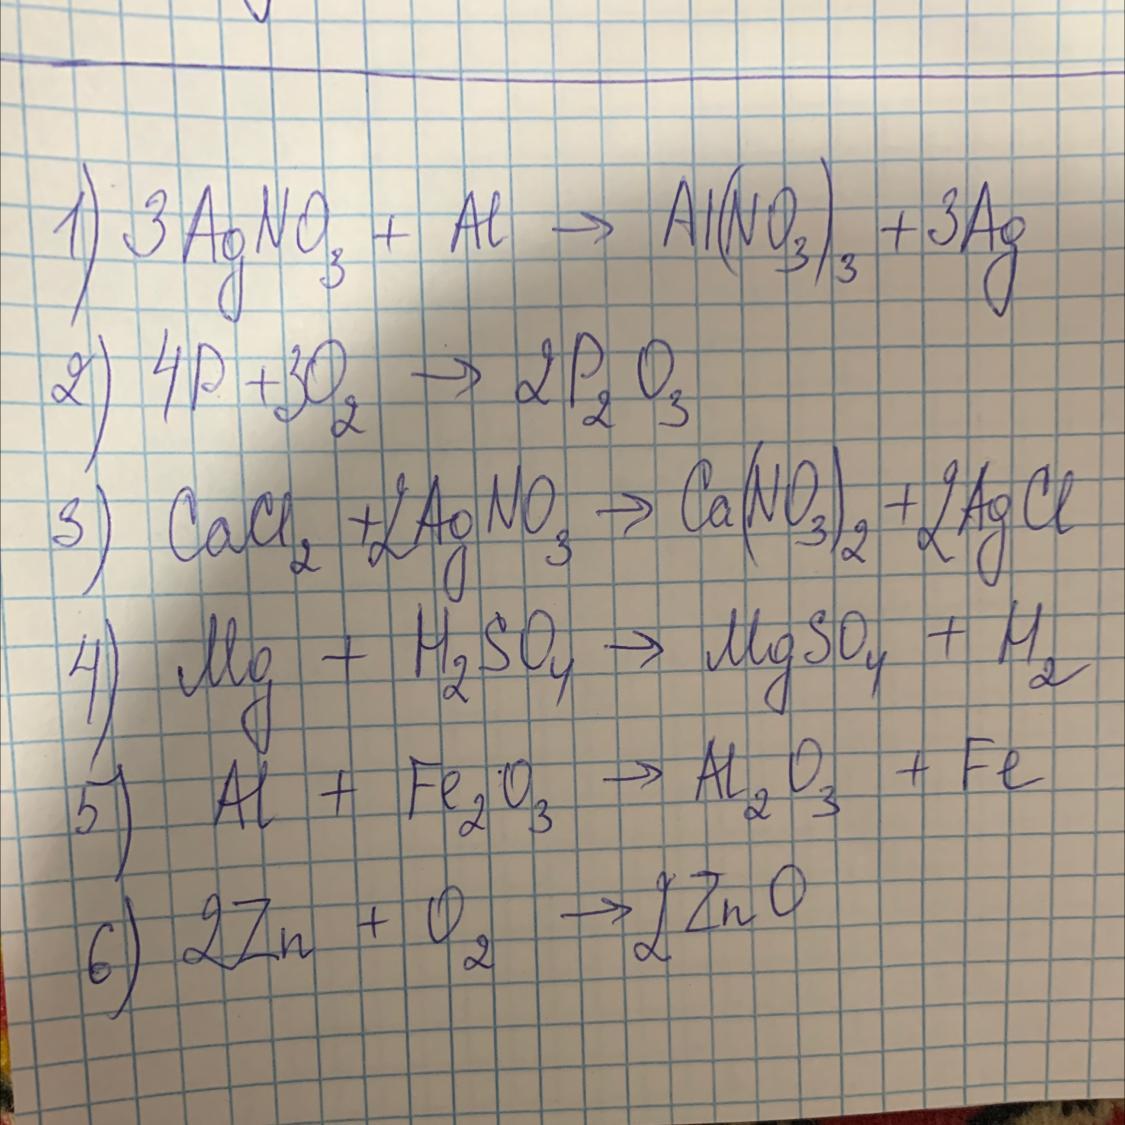 1) 3AgNO₃ + Al → Al(NO₃)₃ + 3Ag
2) 4P + 3O₂ → 2P₂O₃
3) CaCl₂ + 2AgNO₃ → Ca(NO₃)₂ + 2AgCl
4) Mg + H₂SO₄ → MgSO₄ + H₂
5) Al + Fe₂O₃ → Al₂O₃ + Fe
6) 2Zn + O₂ → 2ZnO